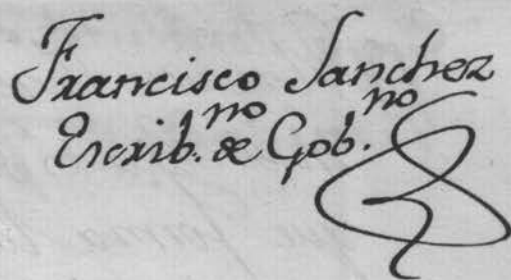 Francisco Sanchez
Escrib.no de Gob.no